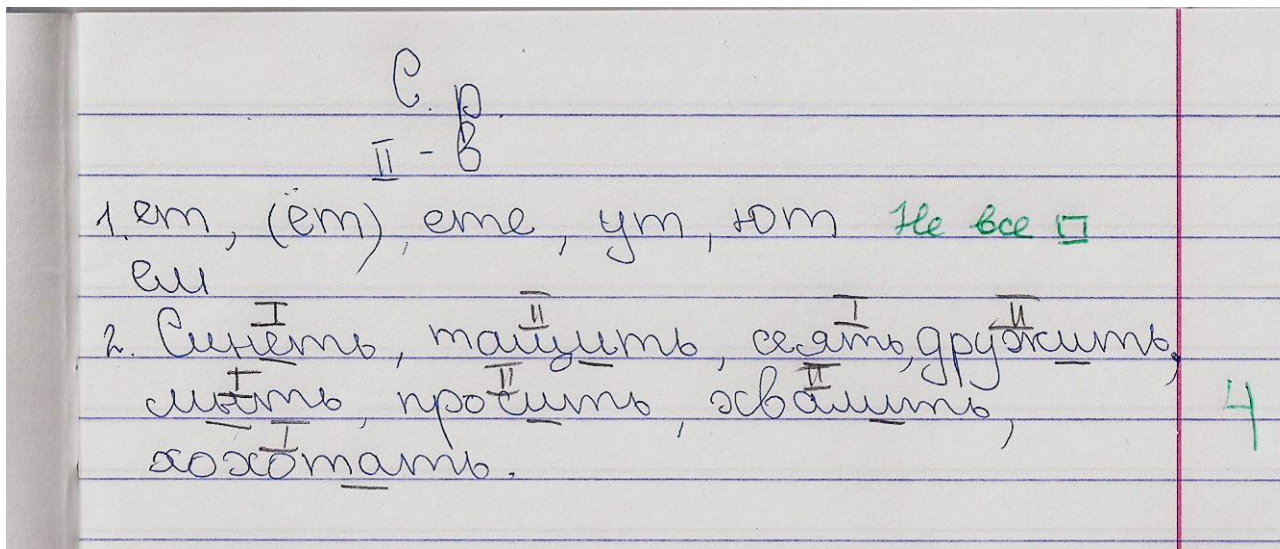 С. р.
II - в
1. ет, (ёт), ете, ут, ют Не все
ем
2. Синеть, тащить, сеять, дружить,
мыть, просить, хвалить,
хохотать.
I II I II
I II II
I
4